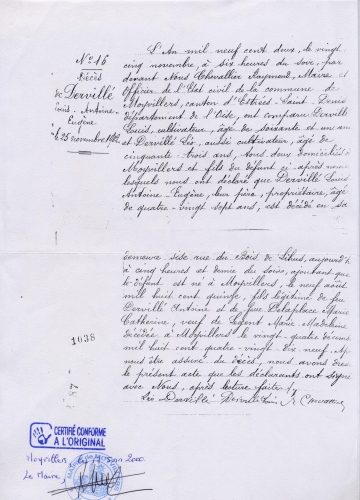 N° 16
Décès
de Dervillé
Louis-Antoine-
Eugène
le 25 novembre 1902
L'An mil neuf cent deux, le vingt
cinq novembre, à six heures du soir, par
devant Nous Chevallier Raymond, Maire et
Officier de l'Etat civil de la commune de
Moyvillers, canton d'Estrées-Saint-Denis
département de l'Oise, ont comparu Dervillé
Louis, cultivateur, âgé de soixante et un ans
et Dervillé Léo, aussi cultivateur, âgé de
cinquante-trois ans, tous deux domiciliés à
Moyvillers et fils du défunt ci-après nommé
lesquels nous ont déclaré que Dervillé Louis
Antoine-Eugène, leur père, propriétaire, âgé
de quatre-vingt sept ans, est décédé en sa
demeure, sise rue du Bois de Lihus, aujourd'hui
à cinq heures et demie du soir, ajoutant que
le défunt est né à Moyvillers, le neuf août
mil huit cent quinze, fils légitime de feu
Dervillé Antoine et de feue Delaplace Marie
Catherine, veuf de Legent Marie-Madeleine
décédée à Moyvillers le vingt-quatre décembre
mil huit cent quatre-vingt dix neuf. Après
nous être assuré du décès, nous avons dressé
le présent acte que les déclarants ont signé
avec Nous, après lecture faite.
Léo Dervillé Dervillé Louis R Chevallier
1638
87
CERTIFIÉ CONFORME
A L'ORIGINAL
Moyvillers, le Juin 2000
Le Maire,